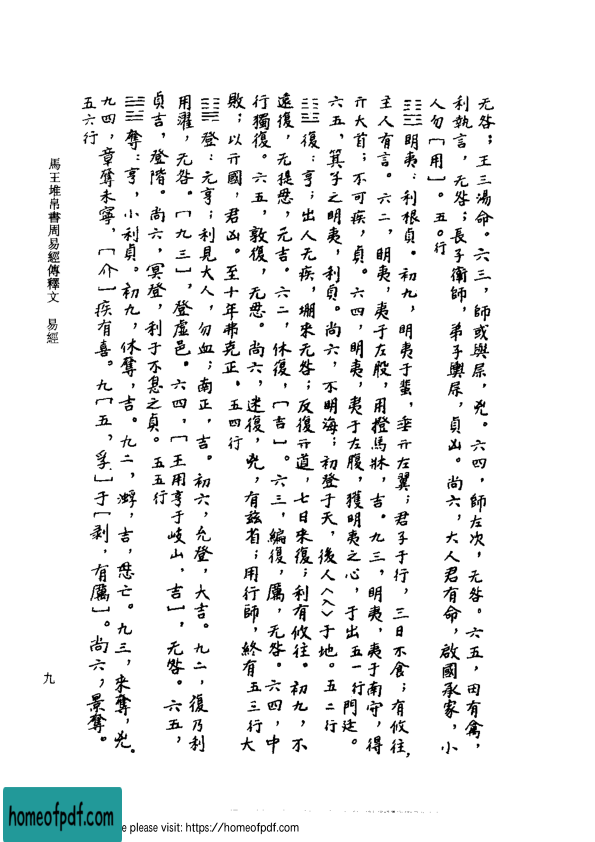 无咎；王三湯命。六三，師或與𡰥，兇。六四，師左次，无咎。六五，田有禽，
利執言，无咎；長子衛師，弟子輿𡰥，貞凶。尚六，大人君有命，啟國承家，小
人勿［用］。五〇行
䷣明夷：利根貞。初九，明夷于蜚，垂亓左翼；君子于行，三日不食；有攸往，
主人有言。六二，明夷，夷于左股，用撜馬牀，吉。九三，明夷，夷于南守，得
亓大首；不可疾，貞。六四，明夷，夷于左腹，獲明夷之心，于出五一行門廷。
六五，箕子之明夷，利貞。尚六，不明海；初登于天，後人〈入〉于地。五二行
䷗復：亨；出人无疾，堋來无咎；反復亓道，七日來復；利有攸往。初九，不
遠復，无提𢘓，元吉。六二，休復，［吉］。六三，編復，厲，无咎。六四，中
行獨復。六五，敦復，无𢘓。尚六，迷復，兇，有茲省；用行師，終有五三行大
敗；以亓國，君凶。至十年弗克正。五四行
䷭登：元亨；利見大人，勿血；南正，吉。初六，允登，大吉。九二，復乃利
用濯，无咎。［九三］，登虛邑。六四，［王用亨于岐山，吉］，无咎。六五，
貞吉，登階。尚六，冥登，利于不息之貞。五五行
䷹奪：亨，小利貞。初九，休奪，吉。九二，𣹢吉，𢘓亡。九三，來奪，兇。
九四，章奪未寧，［介］疾有喜。九［五，孚］于［剝，有厲］。尚六，景奪。
五六行
馬王堆帛書周易經傳釋文 易經
九
homeofpdf.com
e please visit: https://homeofpdf.com